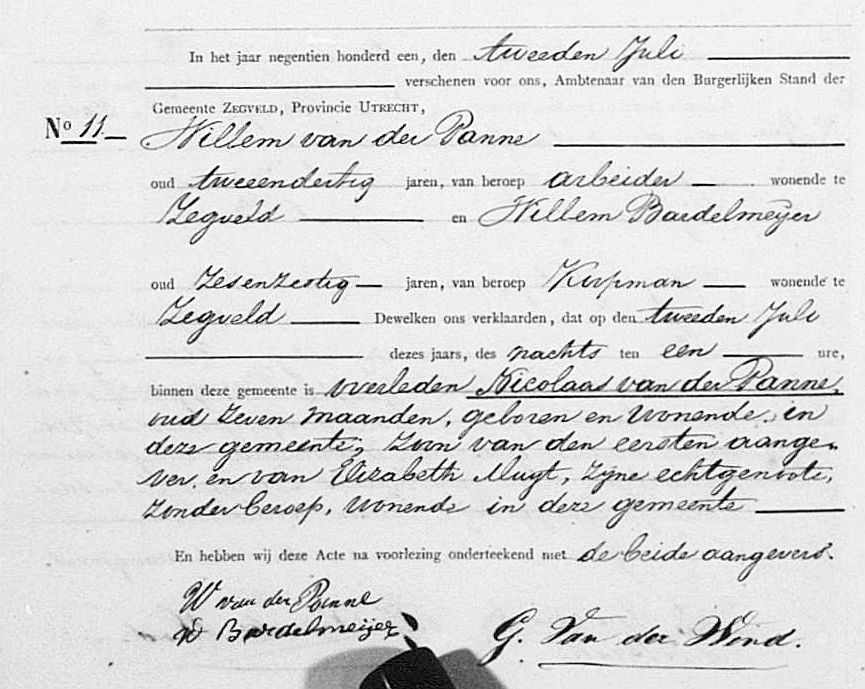 In het jaar negentien honderd een, den tweeden Juli
verschenen voor ons, Ambtenaar van den Burgerlijken Stand der
Gemeente ZEGVELD, Provincie UTRECHT,
No 11.
Willem van der Panne
oud tweeendertig jaren, van beroep arbeider wonende te
Zegveld en Willem Bardelmeijer
oud zesenzestig jaren, van beroep Koopman wonende te
Zegveld Dewelken ons verklaarden, dat op den tweeden Juli
dezes jaars, des nachts ten een ure,
binnen deze gemeente is overleden Nicolaas van der Panne,
oud zeven maanden, geboren en wonende in
deze gemeente, zoon van den eersten aange-
ver, en van Elizabeth Muyt, zijne echtgenoote,
zonder beroep, wonende in deze gemeente
En hebben wij deze Acte na voorlezing onderteekend met de beide aangevers.
W van der Panne
W Bardelmeijer
G. Van der Wind.